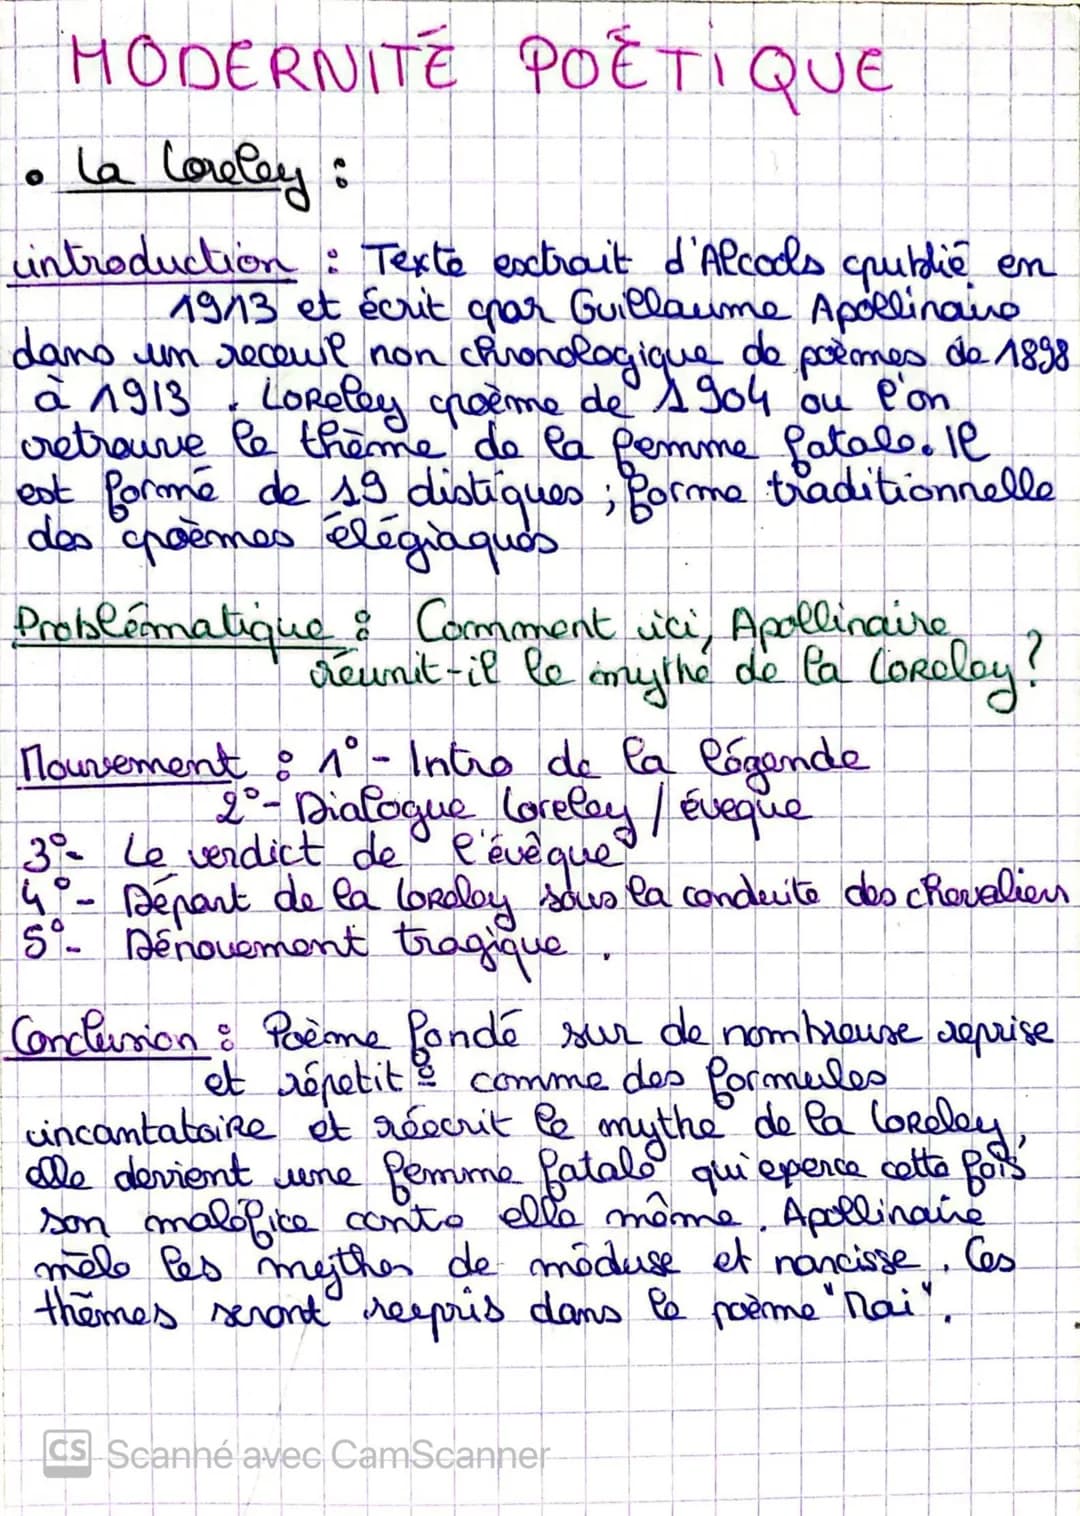 MODERNITÉ POÉTIQUE
• La Loreley :
introduction : Texte extrait d'Alcools publié en
1913 et écrit par Guillaume Apollinaire
dans un receuil non chronologique de poèmes de 1898
à 1913. Loreley poème de 1904 ou l'on
retrouve le thème de la femme fatale. Il
est formé de 19 distiques ; forme traditionnelle
des poèmes élégiaques
Problématique : Comment ici, Apollinaire
réunit-il le mythe de la Loreley ?
Mouvement : 1° - Intro de la légende
2° - Dialogue Loreley / éveque
3° - Le verdict de l'évêque
4° - Départ de la Loreley sous la conduite des chevaliers
5° - Dénouement tragique.
Conclusion : Poème fondé sur de nombreuse reprise
et répetit° comme des formules
incantatoire et réecrit le mythe de la Loreley,
elle devient une femme fatale qui exerce cette fois
son maléfice conte elle même. Apollinaire
mêle les mythes de méduse et narcisse. Ces
thèmes seront repris dans le poème "Mai".
CS Scanné avec CamScanner